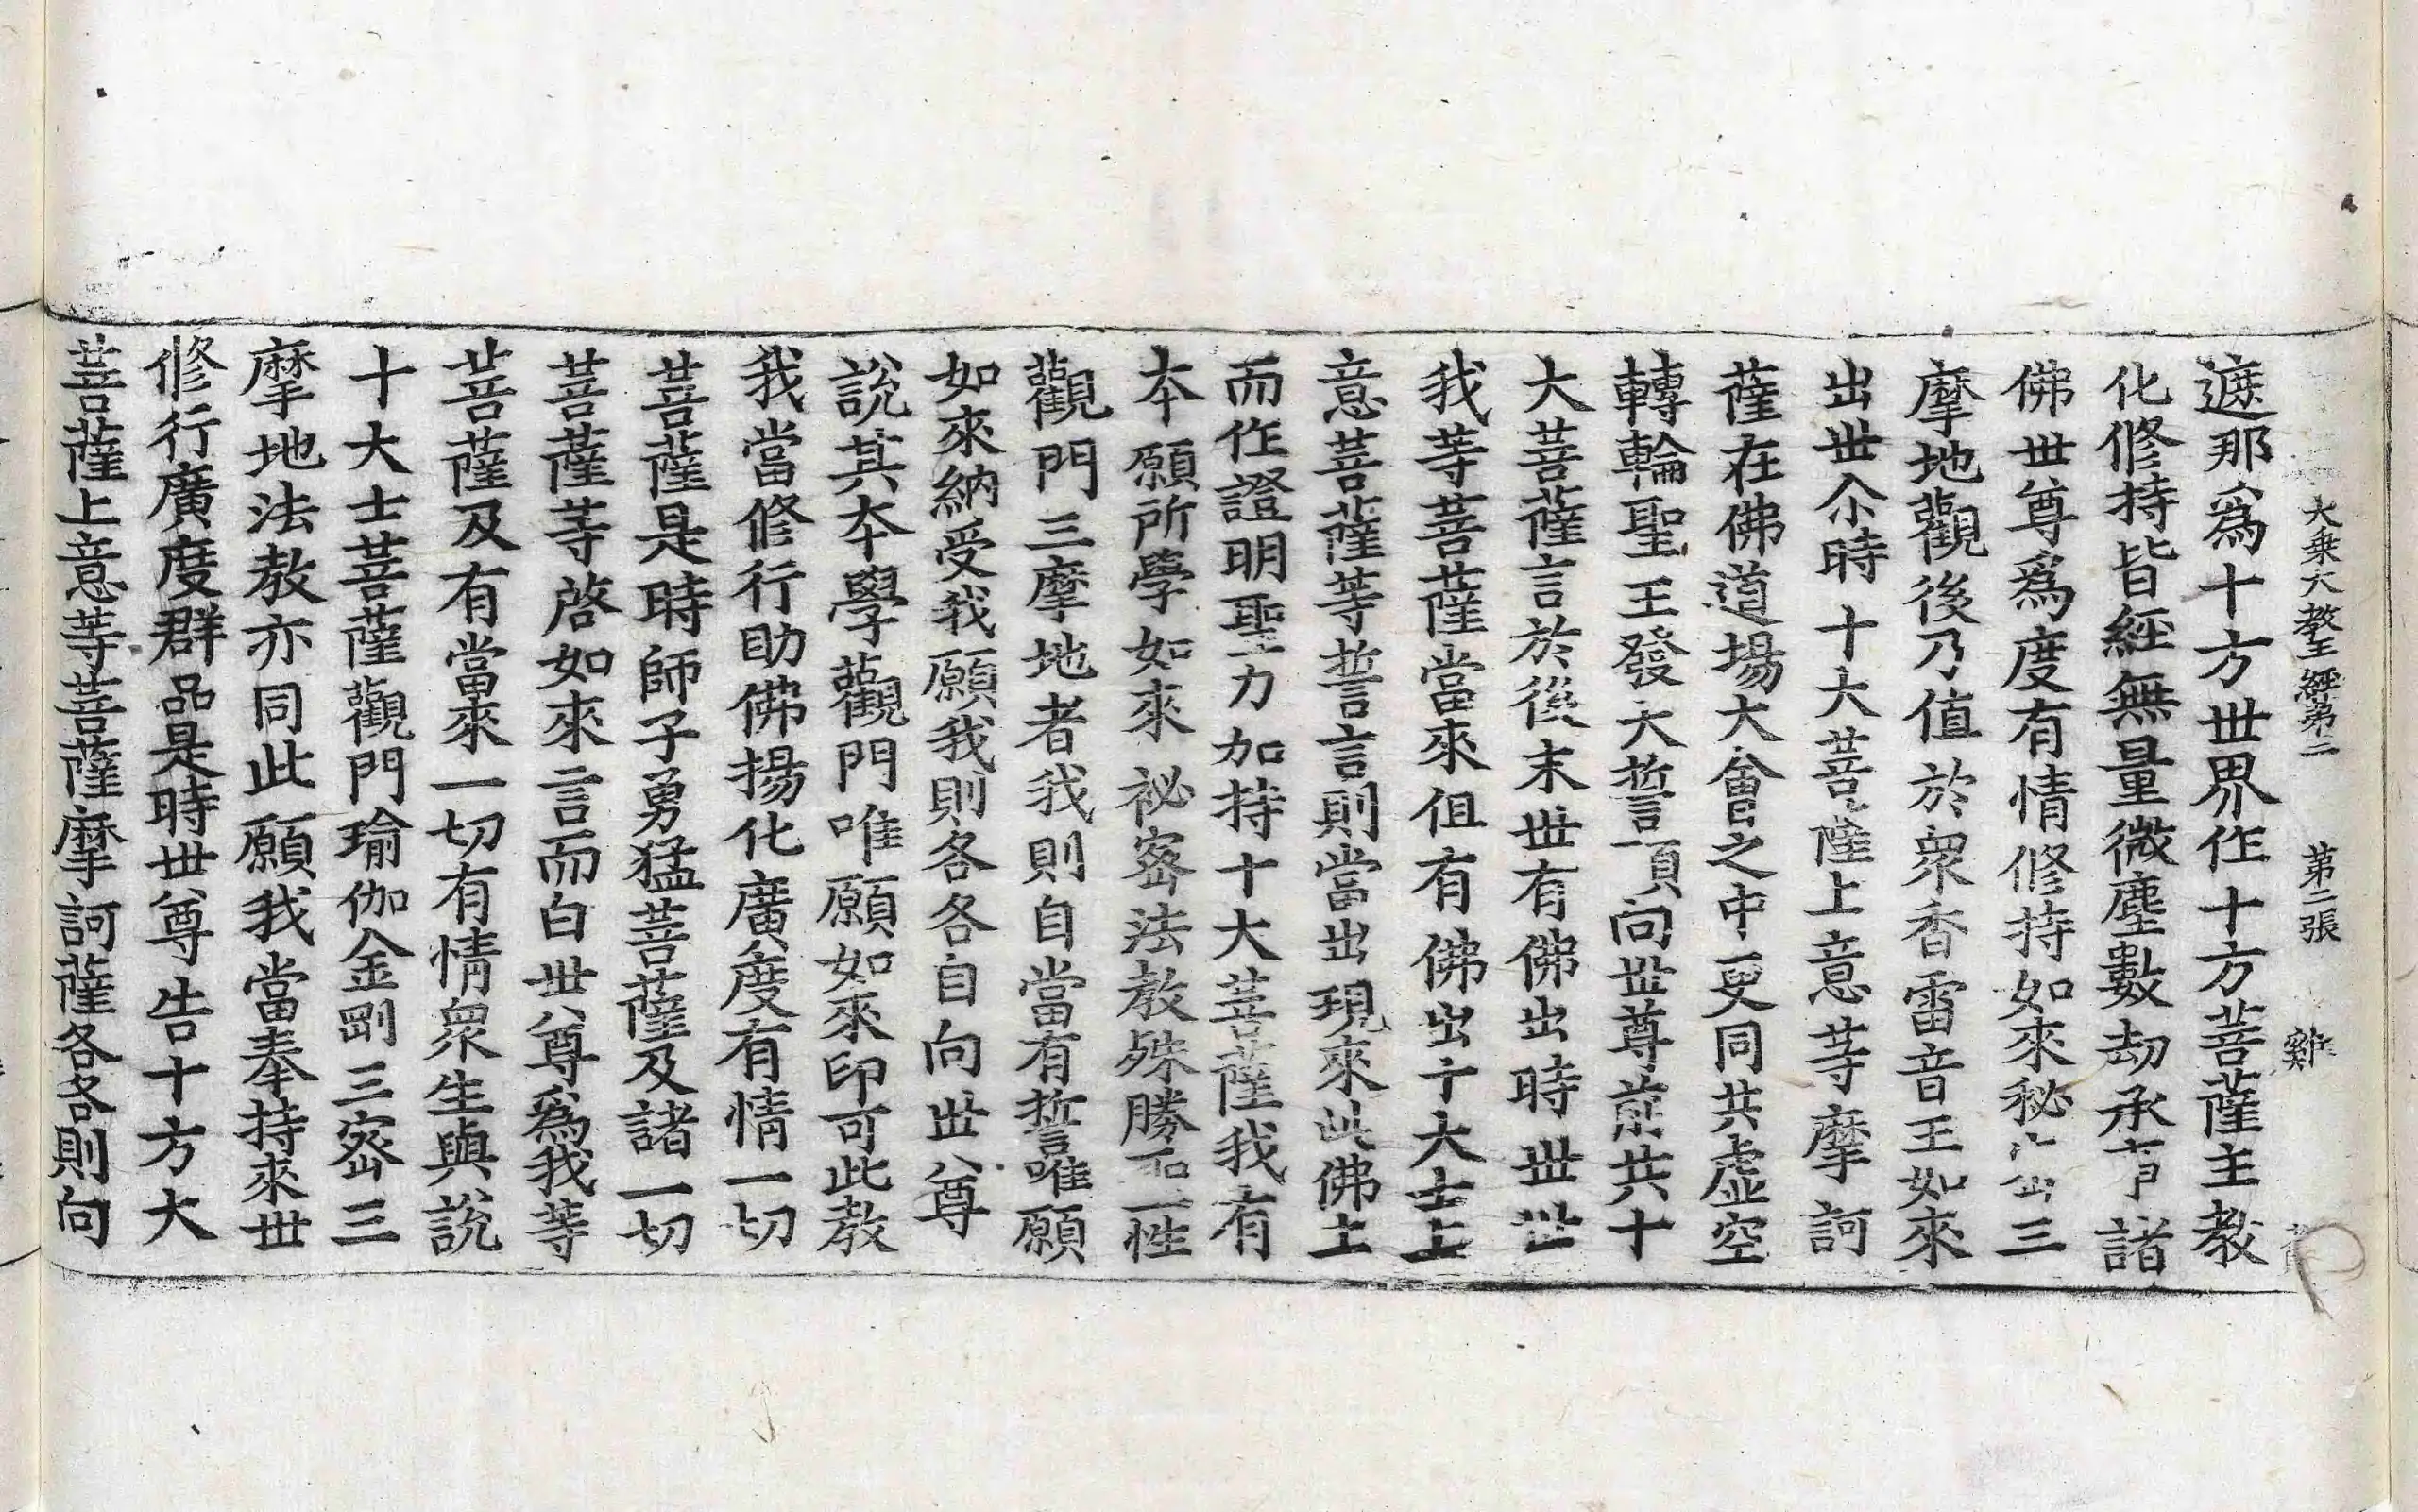 大乗大教王經第二 第二張 雞
遮那為十方世界作十方菩薩主教
化修持皆經無量微塵數劫承 諸
佛世尊為度有情修持如來秘 三
摩地觀後乃值於衆香雷音王如來
出世尒時十大菩薩上意䓁摩訶
薩在佛道場大會之中更同共虛空
轉輪聖王發大誓 向世尊前共十
大菩薩言於後末世有佛出時世世
我䓁菩薩當來但有佛出十大士上
意菩薩䓁誓言則當出現來此佛土
而作證明聖力加持十大菩薩我有
本願所學如來祕密法教殊勝 性
觀門三摩地者我則自當有誓唯願
如來納受我願我則各各自向世尊
說其本學觀門唯願如來印可此教
我當修行助佛揚化廣度有情一切
菩薩是時師子勇猛菩薩及諸一切
菩薩䓁啓如來言而白世尊為我䓁
菩薩及有當來一切有情衆生與說
十大士菩薩觀門瑜伽金剛三密三
摩地法教亦同此願我當奉持來世
修行廣度群品是時世尊告十方大
菩薩上意䓁菩薩摩訶薩各各則向